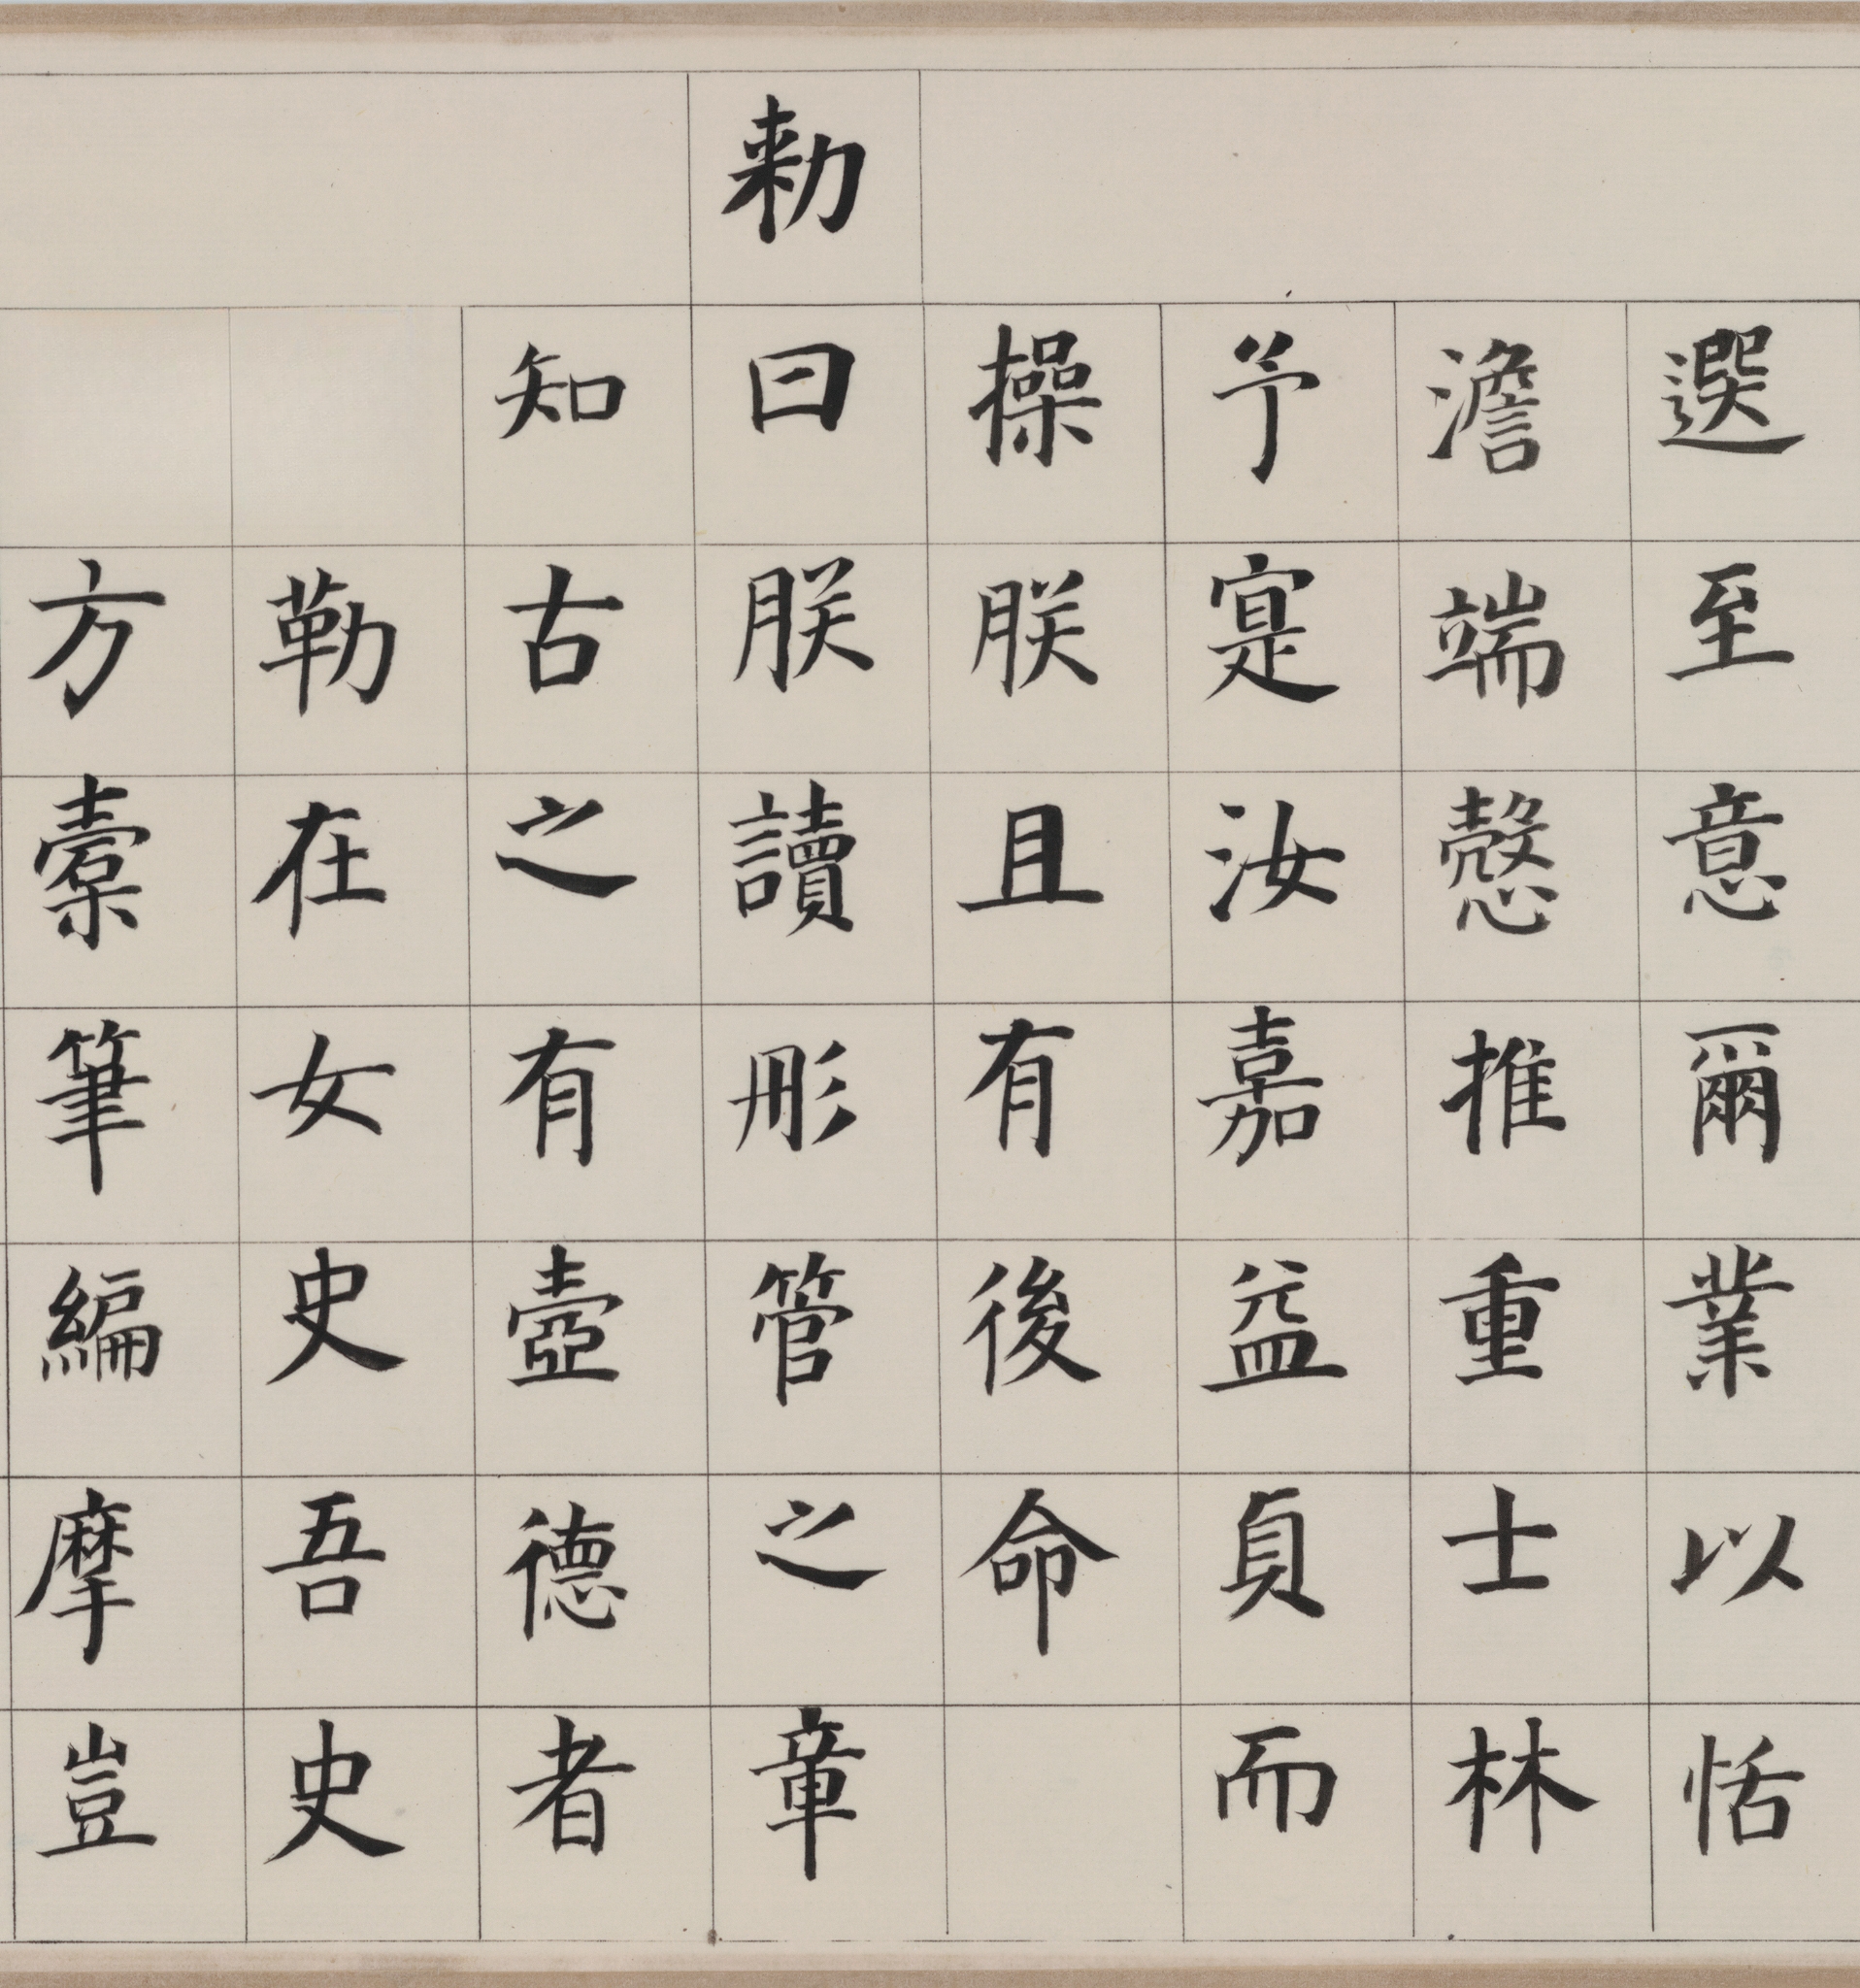 選至意爾業以恬
澹端慤推重士林
予寔汝嘉益貞而
操朕且有後命
勑曰朕讀彤管之章
知古之有壼德者
勒在女史吾史
方橐筆編摩豈